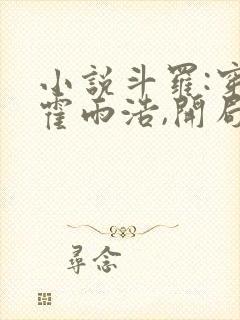 小說斗羅:穿
霍雨浩,開局
尋念